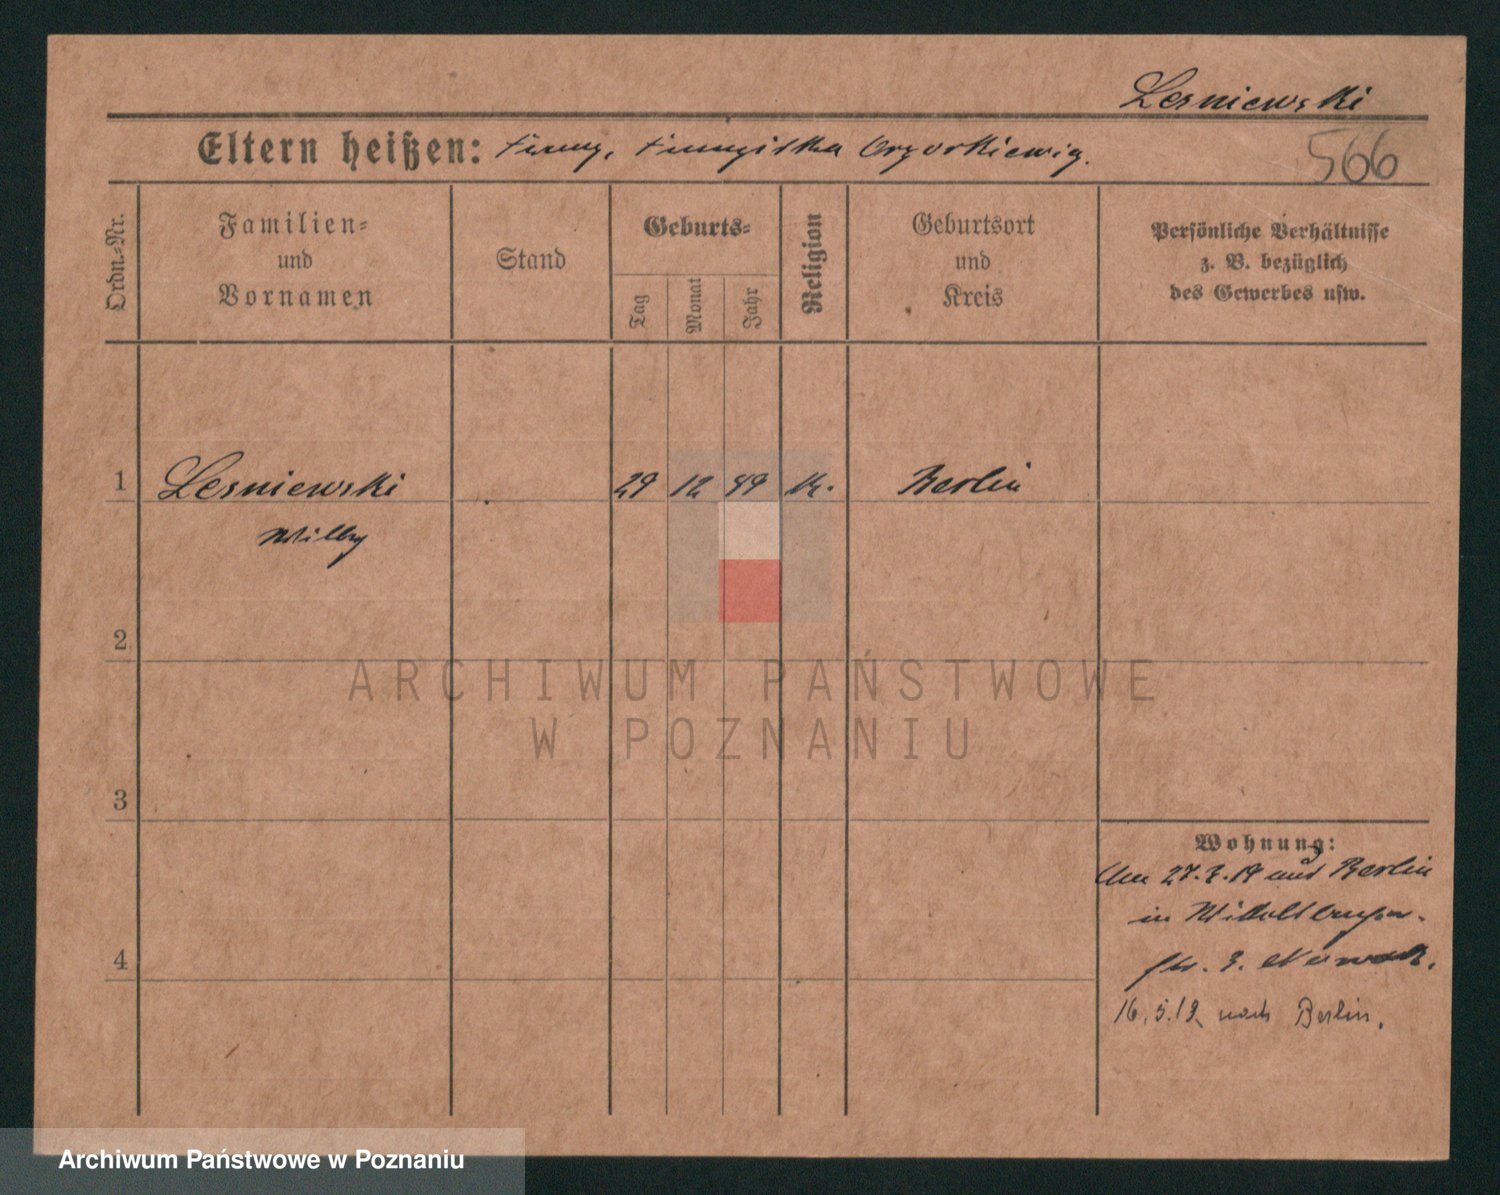 Lesniewski
Eltern heißen: Franz, Franziska
566
Ordn.-Nr.
Familien-
und
Vornamen
Stand
Geburts-
Tag
Monat
Jahr
Religion
Geburtsort
und
Kreis
Persönliche Verhältnisse
z. B. bezüglich
des Gewerbes usw.
1 Lesniewski 29 12 99 k. Berlin
Willy
2
ARCHIWUM PAŃSTWOWE
W POZNANIU
3
Wohnung:
Am 27.3.19 aus Berlin
in
str. 3. Nowack.
4
16.5.19 nach Berlin.
Archiwum Państwowe w Poznaniu